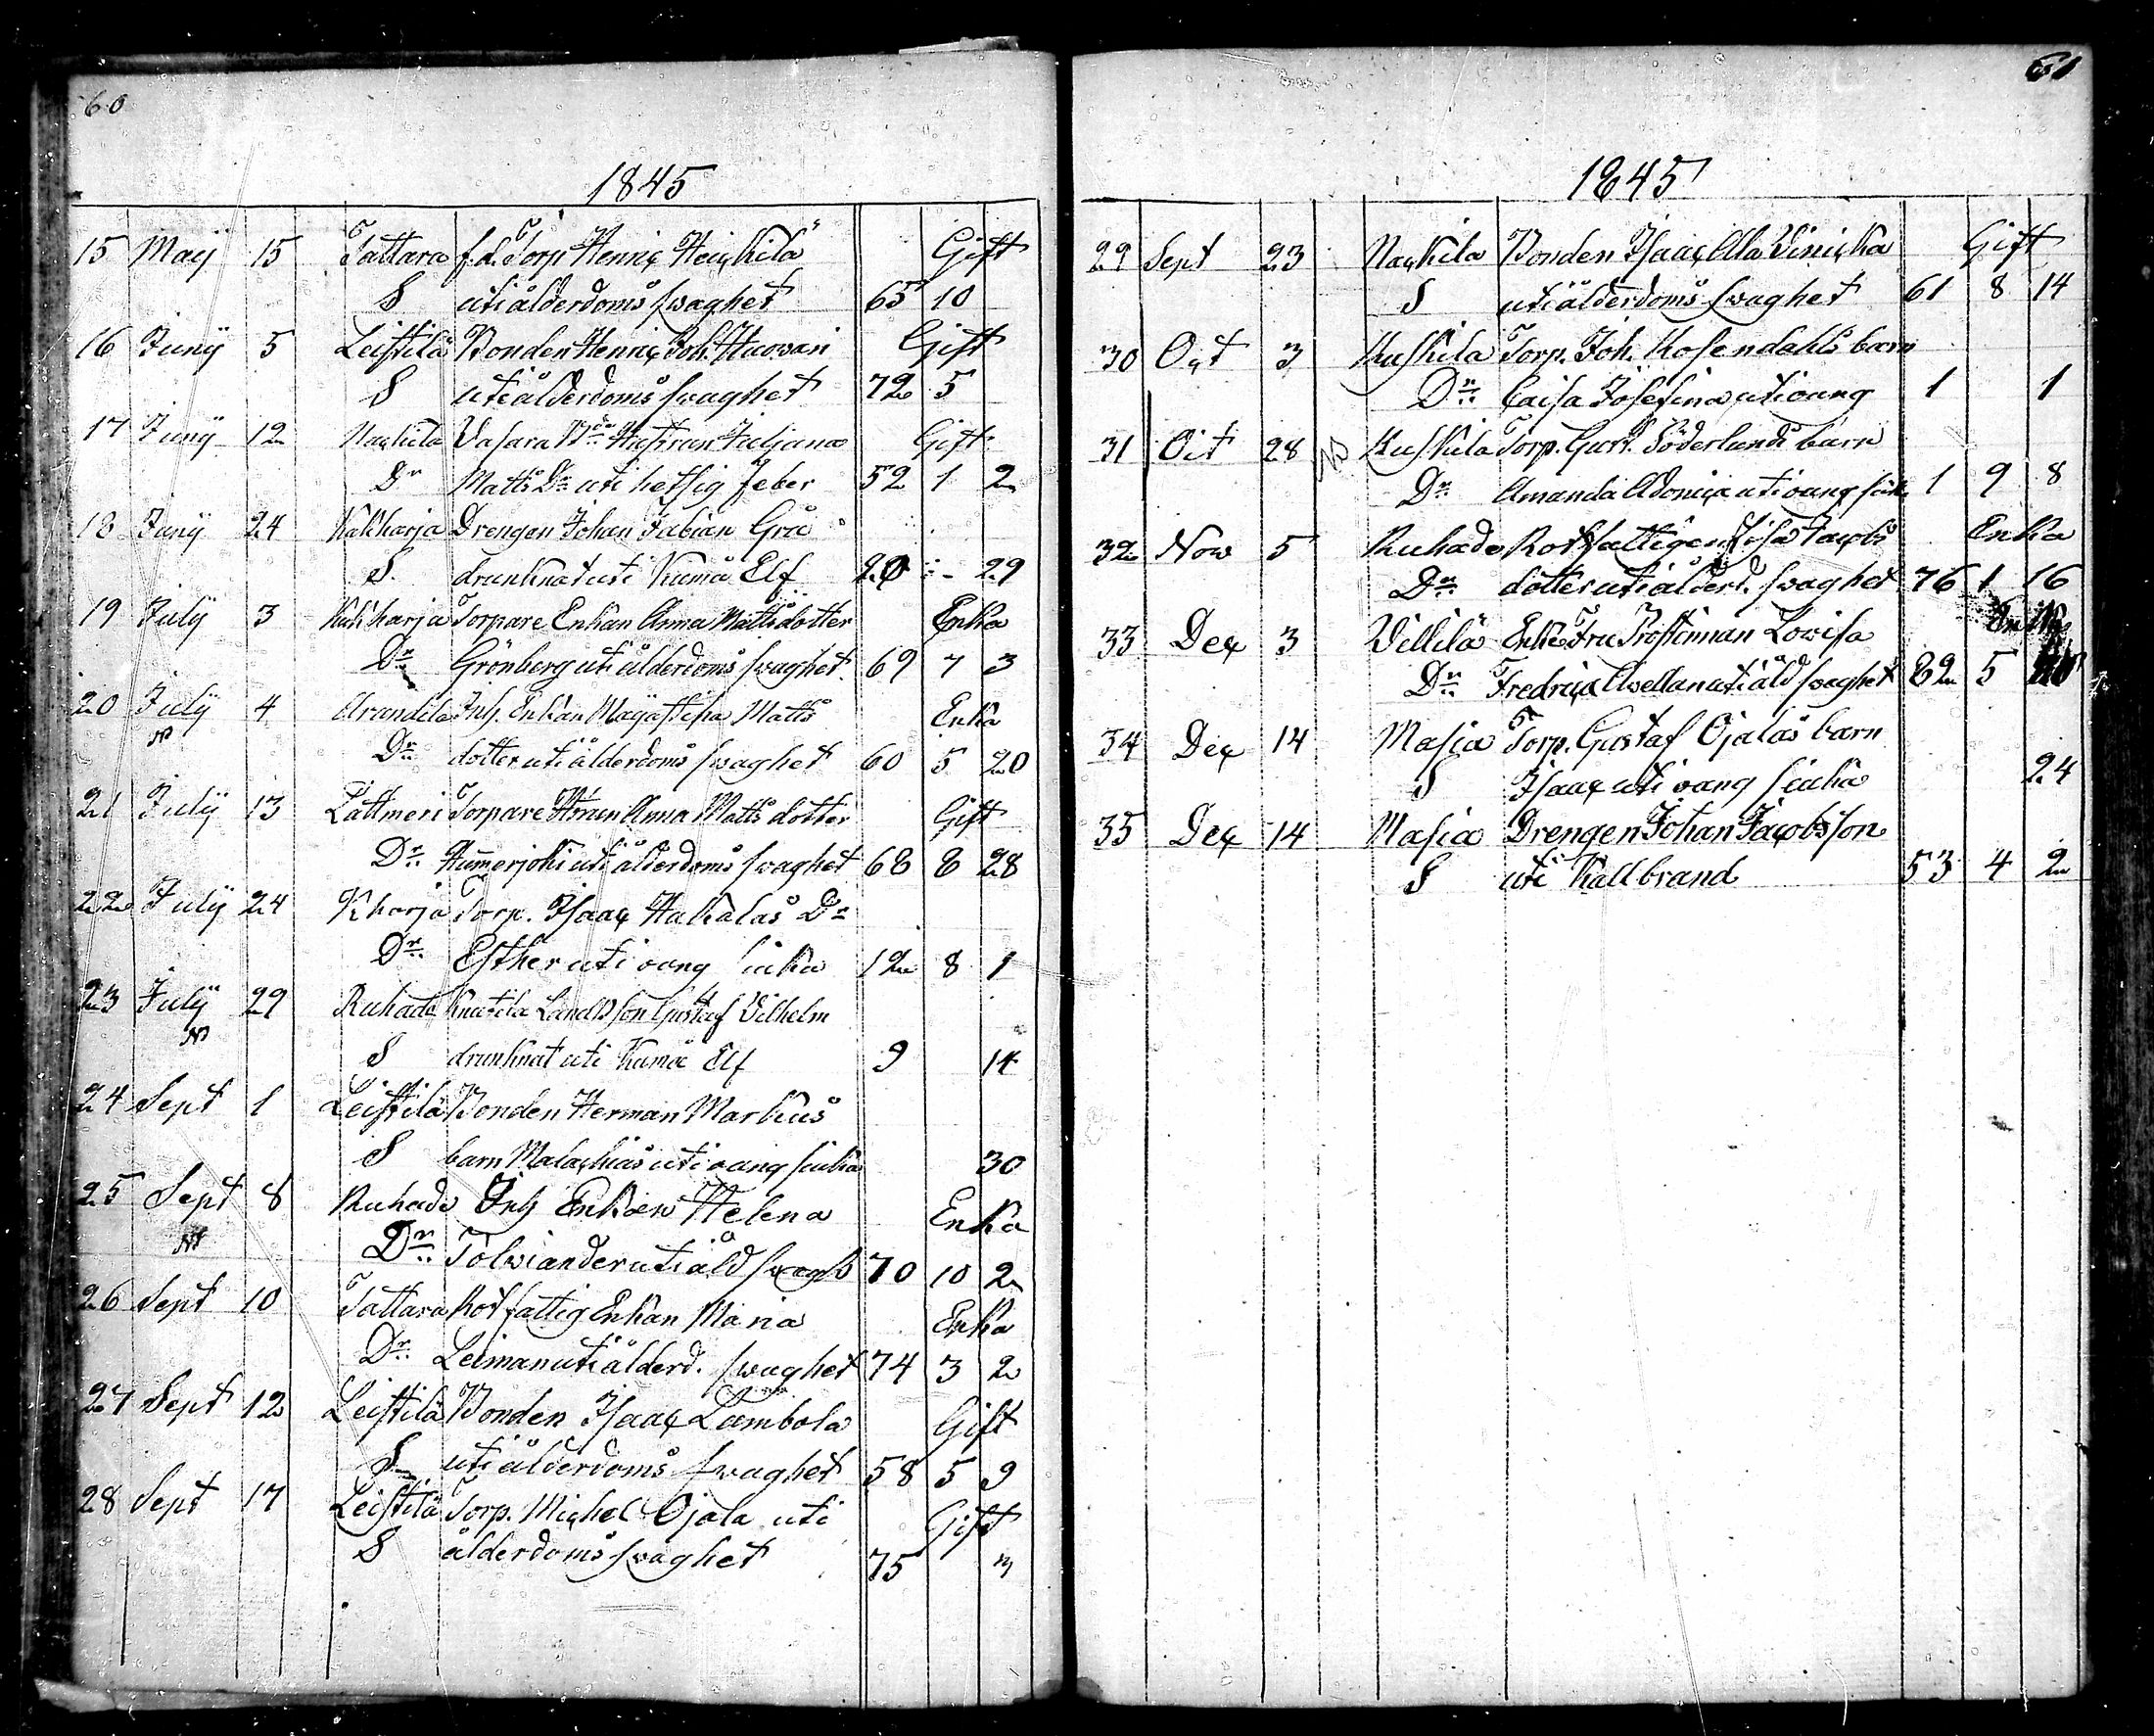 60
1845
15 Maij 15 Tattara f.d. Torp Henric Heickilä Gift
S uti ålderdoms swaghet 65 10
16 Junij 5 Leistilä Bonden Henric Joh. Huowari Gift
S uti ålderdoms swaghet 72 5
17 Junij 12 Nackila Vasara Hustrun Juljana Gift
Dr Matts Dr uti hetsig feber 52 1 2
18 Junij 24 Kukharja Drengen Johan Fabian Grå
S. drunknat uti Kumå Elf 20 - 29
19 Julij 3 Kukharja Torpare Enkan Anna Mattsdotter Enka
Dr Grönberg uti ålderdoms swaghet 69 7 3
20 Julij 4 Arandila Inh. Enkan Maja Stina Matts Enka
Dr dotter uti ålderdoms swaghet 60 5 20
21 Julij 13 Lattmeri Torpare Anna Matts dotter Gift
Dr Hummerjoki uti ålderdoms swaghet 68 8 28
22 Julij 24 Kharja Torp. Isaac Hakalas Dr
Dr Esther uti oang siuka 12 8 1
23 Julij 29 Ruhade Knutila Gustaf Vilhelm
S drunknat uti Kumå Elf 9 14
24 Sept 1 Leistilä Bonden Herman Markus
S barn Malachias uti oang siuka 30
25 Sept 8 Ruhade Inh Enkan Helena Enka
Dr Tolwiander uti åld swagh 70 10 2
26 Sept 10 Tattara Rotfattig Enkan Maria Enka
Dr Leiman uti ålderd. swaghet 74 3 2
27 Sept 12 Leistilä Bonden Isaac Lambola Gift
S uti ålderdoms swaghet 58 5 9
28 Sept 17 Leistilä Torp. Michel Ojala uti Gift
S ålderdoms swaghet 75 3
61
1845
29 Sept 23 Nackila Bonden Isaac Alla Vinicka Gift
S uti ålderdoms swaghet 61 8 14
30 Oct 3 Kuskila Torp. Joh. Rosendahls barn
Dr Caisa Josefina uti oang 1 1
31 Oct 28 Kuskila Torp. Gust. Söderlunds barn
Dr Amanda uti oang siuk 1 9 8
32 Nov 5 Ruhade Rotfattigen Lisa Jacobs Enka
Dr dotter uti ålderd. swaghet 76 1 16
33 Dec 3 Villilä Enke Fru Prostinnan Lowisa
Dr Fredrica Avellan uti åld swaghet 82 5
34 Dec 14 Masia Torp. Gustaf Ojalas barn
S Isaac uti oang siuka 24
35 Dec 14 Masia Drengen Johan Jacobsson
S uti Kallbrand 53 4 2